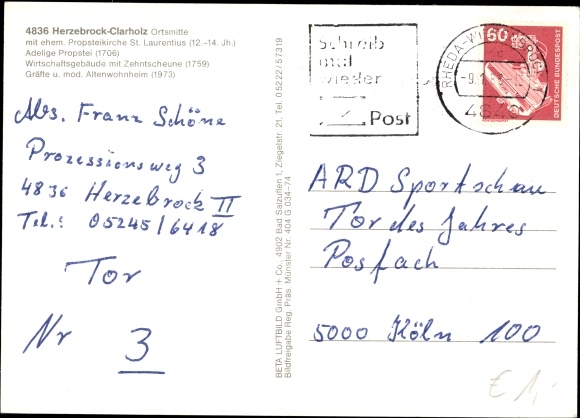 4836 Herzebrock-Clarholz Ortsmitte
mit ehem. Propsteikirche St. Laurentius (12.-14. Jh.)
Adelige Propstei (1706)
Wirtschaftsgebäude mit Zehntscheune (1759)
Gräfte u. mod. Altenwohnheim (1973)
Abs. Franz Schöne
Prozessionsweg 3
4836 Herzebrock II
Tel.: 05245/6418
Tor
Nr 3
BETA LUFTBILD GmbH + Co., 4902 Bad Salzuflen 1, Ziegelstr. 21, Tel. 05222/57319
Bildfreigabe Reg. Präs. Münster Nr. 404 G 034-74
Schreib
mal
wieder
Post
RHEDA-WI
-9.1
4840
60
DEUTSCHE BUNDESPOST
ARD Sportschau
Tor des Jahres
Posfach
5000 Köln 100
€ 1,-